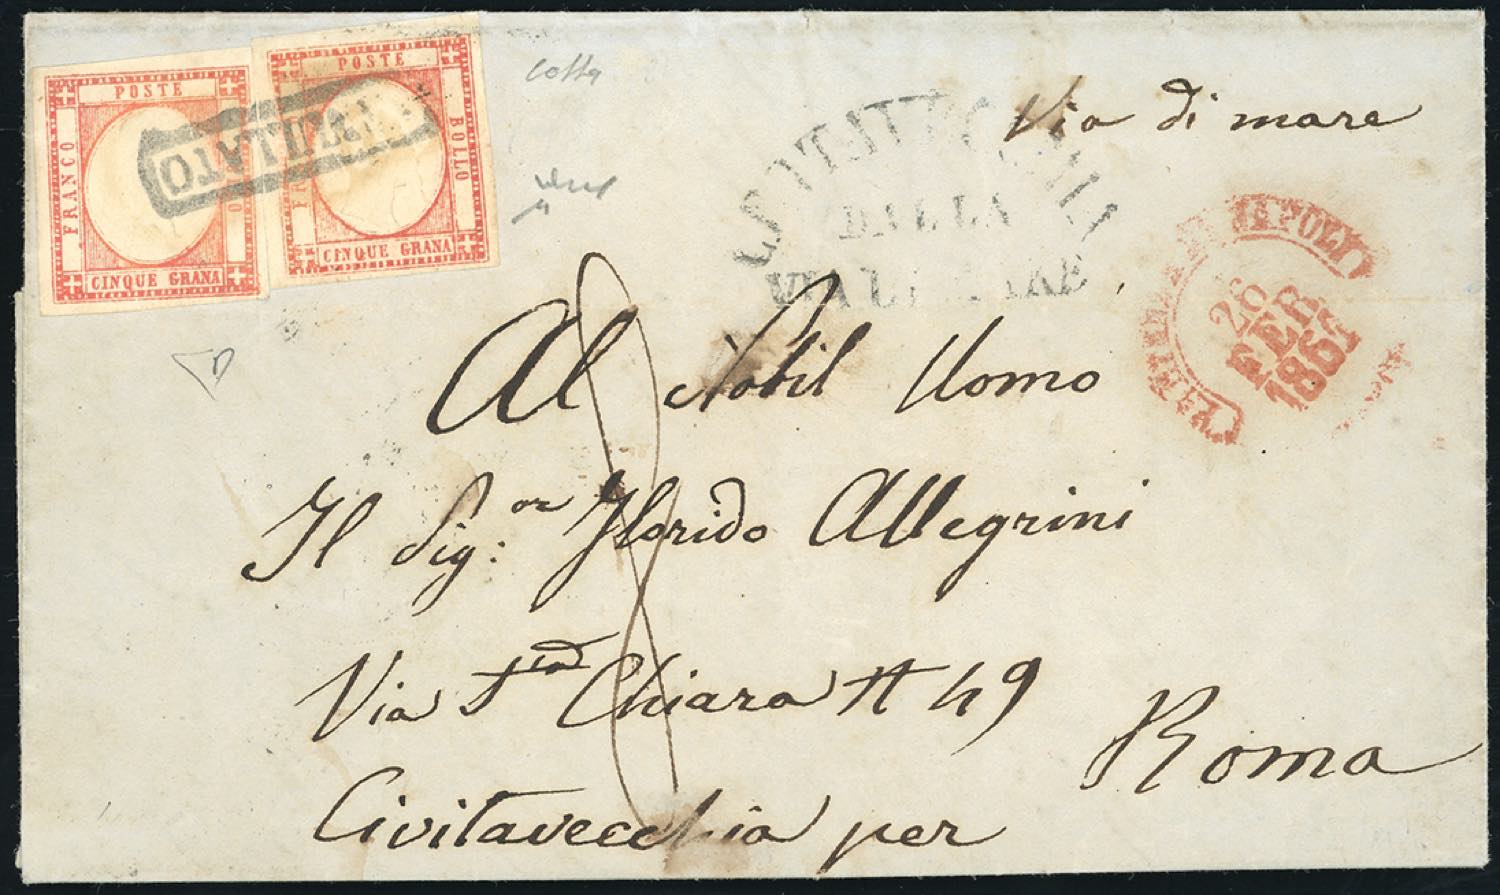 POSTE
FRANCO
CINQUE GRANA
POSTE
BOLLO
CINQUE GRANA
ANNULLATO
Via di mare
DALLA
VIA DI MARE
NAPOLI
26
FEB
1862
Al Nobil Uomo
Il Sig:or Florido Allegrini
Via Sta Chiara N 49
Civitavecchia per
Roma
8